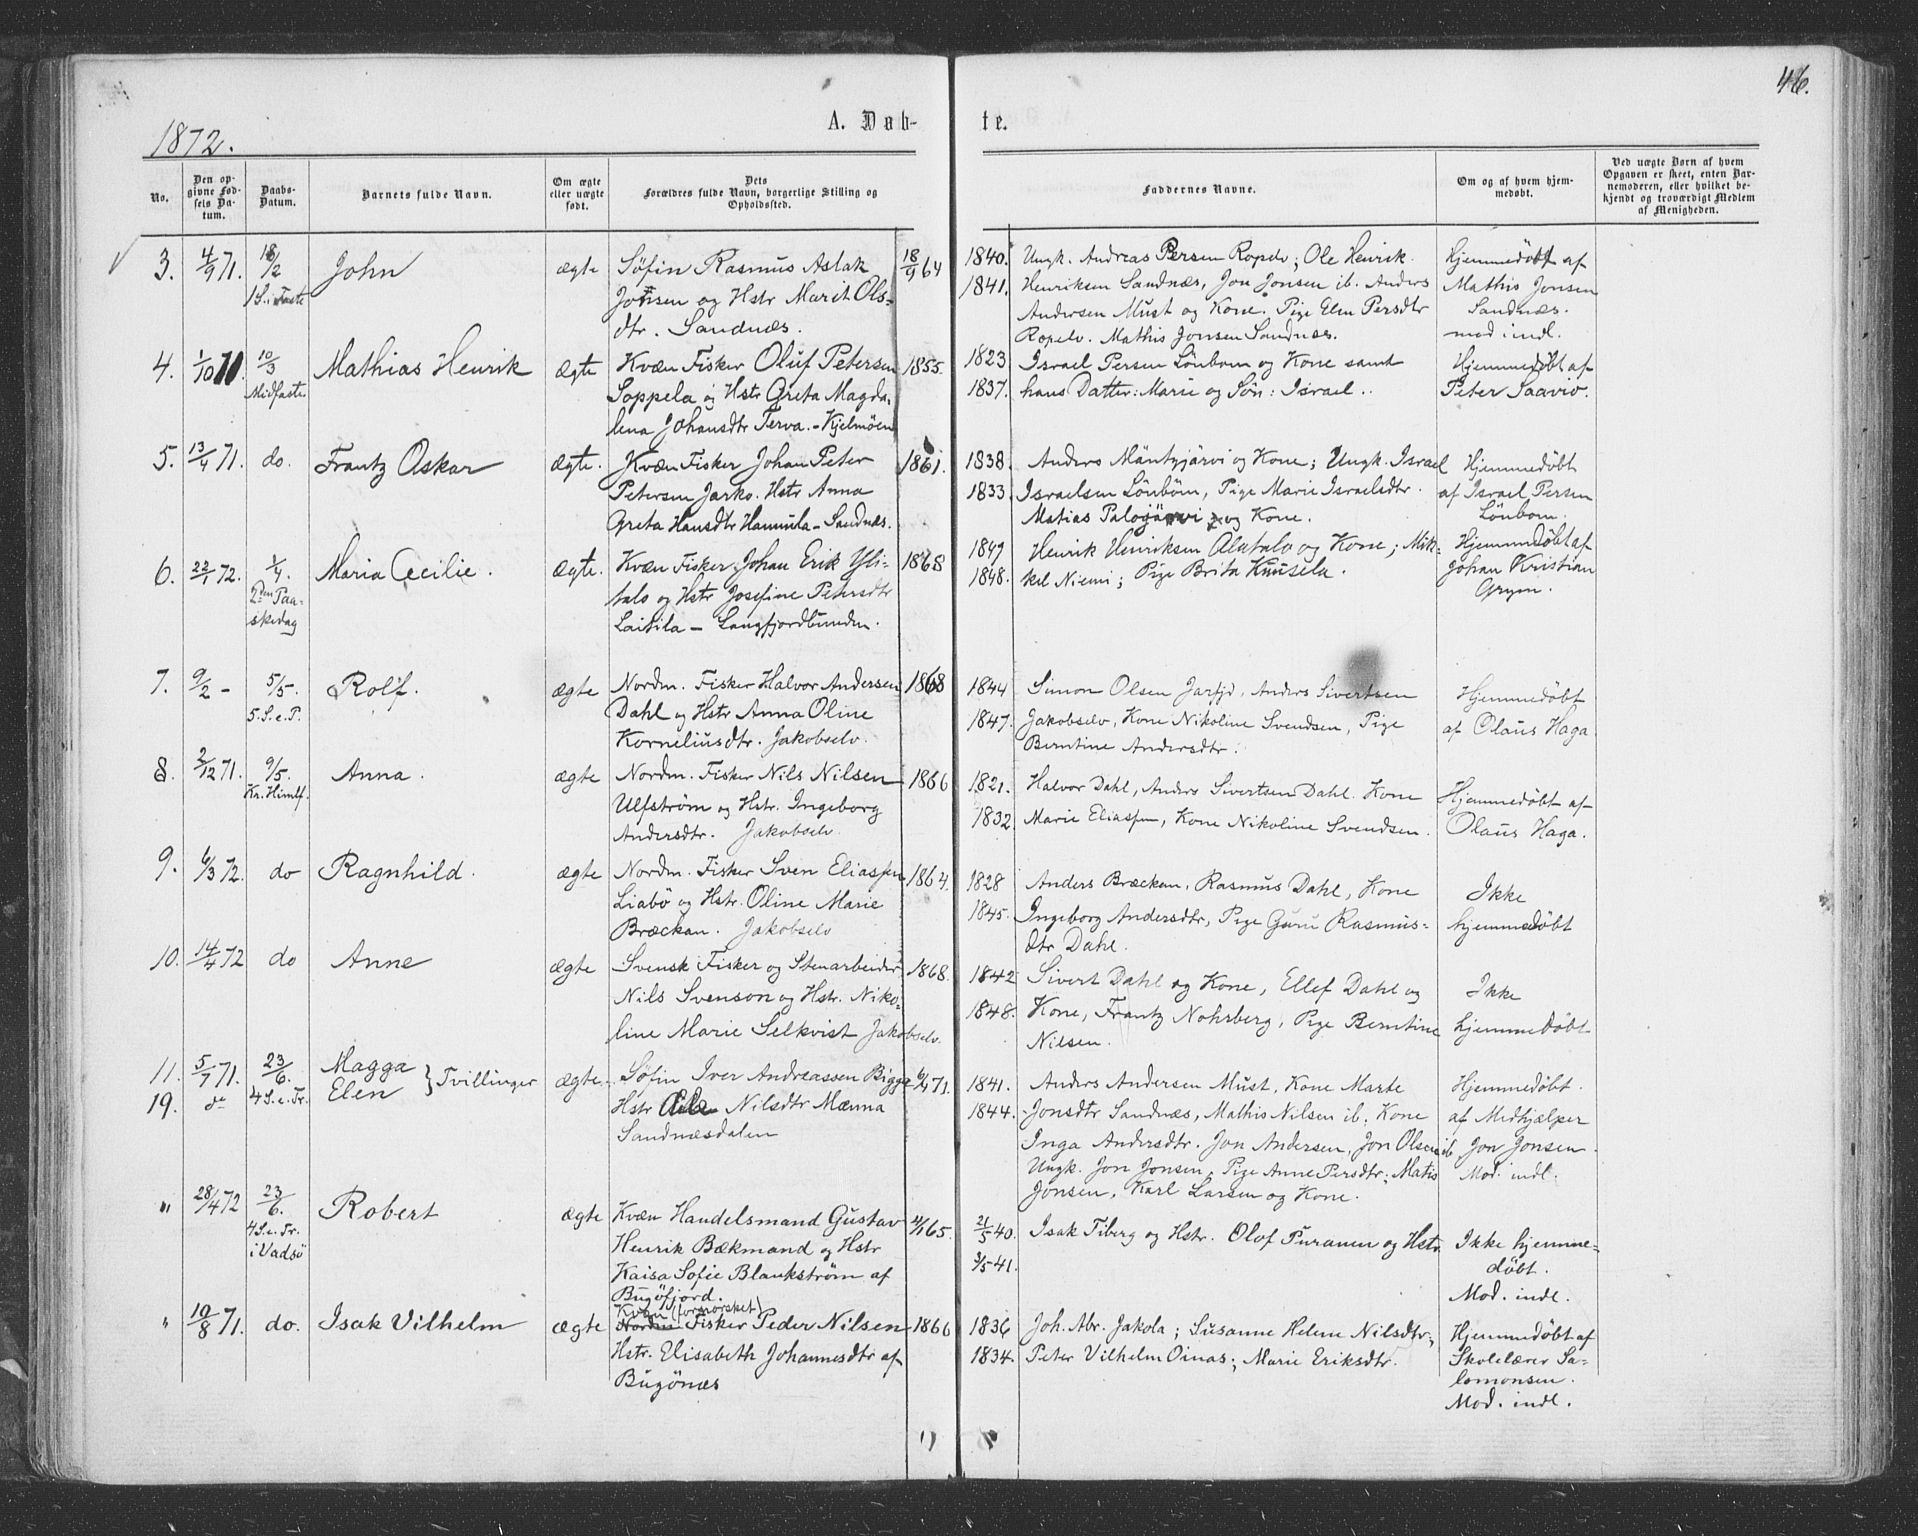 46.
1872.
A. Døb-
te.
No.
Den op-
givne Fød-
sels Da-
tum.
Daabs-
Datum.
Barnets fulde Navn.
Om ægte
eller uægte
født.
Dets
Forældres fulde Navn, borgerlige Stilling og
Opholdssted.
Faddernes Navne.
Om og af hvem hjem-
medøbt.
Ved uægte Børn af hvem
Opgaven er skeet, enten Bar-
nemoderen, eller hvilket be-
kjendt og troværdigt Medlem
af Menigheden.
3. 4/9 71. 18/2
1 S. i Faste
John
ægte
Søfin Rasmus Aslak
Jonsen og Hstr Marit Ols-
dtr. Sandnæs.
18/9 64
1840.
1841.
Ungk. Andreas Persen Ropelv; Ole Henrik
Henriksen Sandnæs, Jon Jonsen ib. Anders
Andersen Must og Kone. Pige Elen Persdtr
Ropelv. Mathis Jonsen Sandnæs.
hjemmedøbt af
Mathis Jonsen
Sandnæs.
med indl.
4. 1/10 71. 10/3
Midfaste
Mathias Henrik
ægte
Kvæn Fisker Oluf Petersen
Soppela og Hstr Greta Magda-
lena Johansdtr Terva. - Kjelmøen
1855.
1823
1837.
Israel Persen Lönbom og Kone samt
hans Datter: Marie og Søn: Israel.
Hjemmedøbt af
Peter Saavio.
5. 13/4 71. do.
Frantz Oskar
ægte.
Kvæn Fisker Johan Peter
Petersen Jarko. Hstr Anna
Greta Hansdtr Hannula - Sandnæs.
1861.
1838.
1833.
Anders Mäntyjärvi og Kone; Ungk. Israel
Israelsen Lönbom, Pige Marie Israelsdtr.
Matias Palojärvi og Kone.
Hjemmedøbt
af Israel Persen
Lönbom.
6. 22/1 72. 1/4.
2den Paa-
skedag
Maria Cecilie.
ægte.
Kvæn Fisker Johan Erik Yli-
talo og Hstr Josefine Petersdtr
Laitila - Langfjordbunden.
1868
1847
1848.
Henrik Henriksen Alatalo og Kone; Mik-
kel Niemi; Pige Brita Kuusela.
Hjemmedøbt af
Johan Kristian
Grym.
7. 9/2 - 5/5.
5. S. e. P.
Rolf.
ægte
Nordm. Fisker Halvor Andersen
Dahl og Hstr Anna Oline
Korneliusdtr. Jakobselv.
1868
1844
1847.
Simon Olsen Jarfjd, Anders Sivertsen
Jakobselv, Kone Nikoline Svendsen, Pige
Berntine Andersdtr.
Hjemmedøbt
af Olaus Haga.
8. 2/12 71. 9/5.
Kr. Himlf.
Anna.
ægte
Nordm. Fisker Nils Nilsen
Ulfström og Hstr. Ingeborg
Andersdtr. Jakobselv.
1866
1821.
1832.
Halvor Dahl, Anders Sivertsen Dahl. Kone
Marie Eliassen, Kone Nikoline Svendsen.
Hjemmedøbt af
Olaus Haga.
9. 6/3 72. do
Ragnhild.
ægte
Nordm. Fisker Sven Eliassen
Liabö og Hstr. Oline Marie
Bræckan. Jakobselv
1864.
1828
1845.
Anders Bræckan, Rasmus Dahl, Kone
Ingeborg Andersdtr, Pige Guru Rasmus-
dtr Dahl.
Ikke
hjemmedøbt
10. 14/4 72 do
Anne
ægte
Svensk Fisker og Stenarbeider
Nils Svenson og Hstr. Niko-
line Marie Selkvist Jakobselv.
1868.
1842
1848.
Sivert Dahl og Kone, Ellef Dahl og
Kone, Frantz Nohrberg, Pige Berntine
Nilsen.
Ikke
hjemmedøbt
11. 5/7 71. 23/6.
19. do 4 S. e. Tr.
Magga
Elen } Tvillinger
ægte.
Søfin Iver Andreassen Bigga
Hstr Nilsdtr Mænna
Sandnæsdalen
6/4 71.
1841.
1844.
Anders Andersen Must, Kone Marte
Jonsdtr Sandnæs, Mathis Nilsen ib. Kone
Inga Andersdtr. Jon Andersen, Jon Olsen ib
Ungk. Jon Jonsen, Pige Anne Persdtr; Matis
Jonsen, Karl Larsen og Kone.
Hjemmedøbt
af Medhjælper
Jon Jonsen.
Med indl.
" 28/4 72 23/6.
4 S. e. Tr.
i Vadsö
Robert
ægte
Kvæn Handelsmand Gustav
Henrik Bækmand og Hstr
Kaisa Sofie Blankström af
Bugøfjord.
65.
21/5 40.
3/5 41.
Isak Fiberg og Hstr. Olof Puranen og Hstr.
Ikke hjemme-
døbt.
Med. indl.
" 10/8 71. do.
Isak Vilhelm
ægte
Kvæn (fornorsket)
Nordm. Fisker Peder Nilsen
Hstr. Elisabeth Johannesdtr af
Bugönæs
1866
1836
1834.
Joh. Abr. Jakola; Susanne Helene Nilsdtr;
Peter Vilhelm Oinas; Marie Eriksdtr.
Hjemmedøbt af
Skolelærer Sa-
lomonsen.
Med. indl.